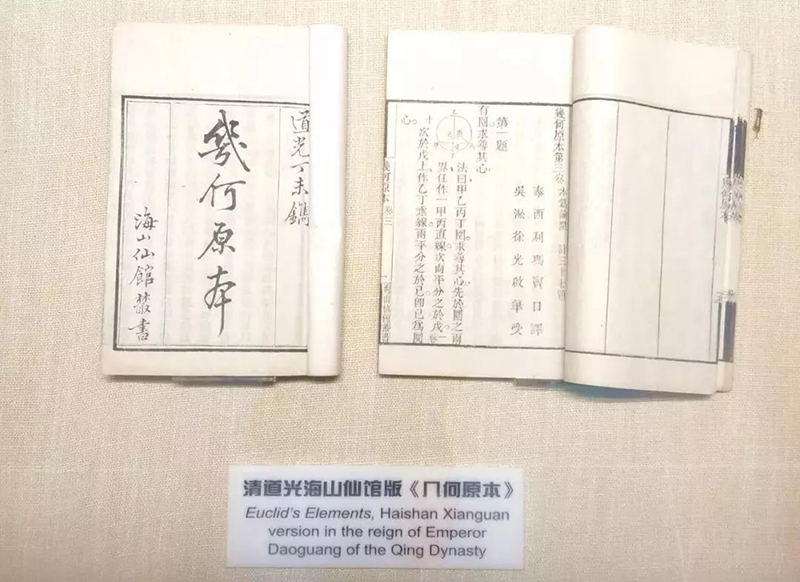 道光丁未鐫
幾何原本
海山仙館叢書
幾何原本第三卷
泰西利瑪竇口譯
吳淞徐光啟筆受
第一題
有圜求尋其心
法曰甲乙丙丁圜求尋其心先於圜之兩
界任作一甲丙直線次兩平分之於戊一
十次於戊上作乙丁垂線兩平分之於己即己為圜
心
幾何原本 卷三
清道光海山仙馆版《几何原本》
Euclid's Elements, Haishan Xianguan
version in the reign of Emperor
Daoguang of the Qing Dynasty